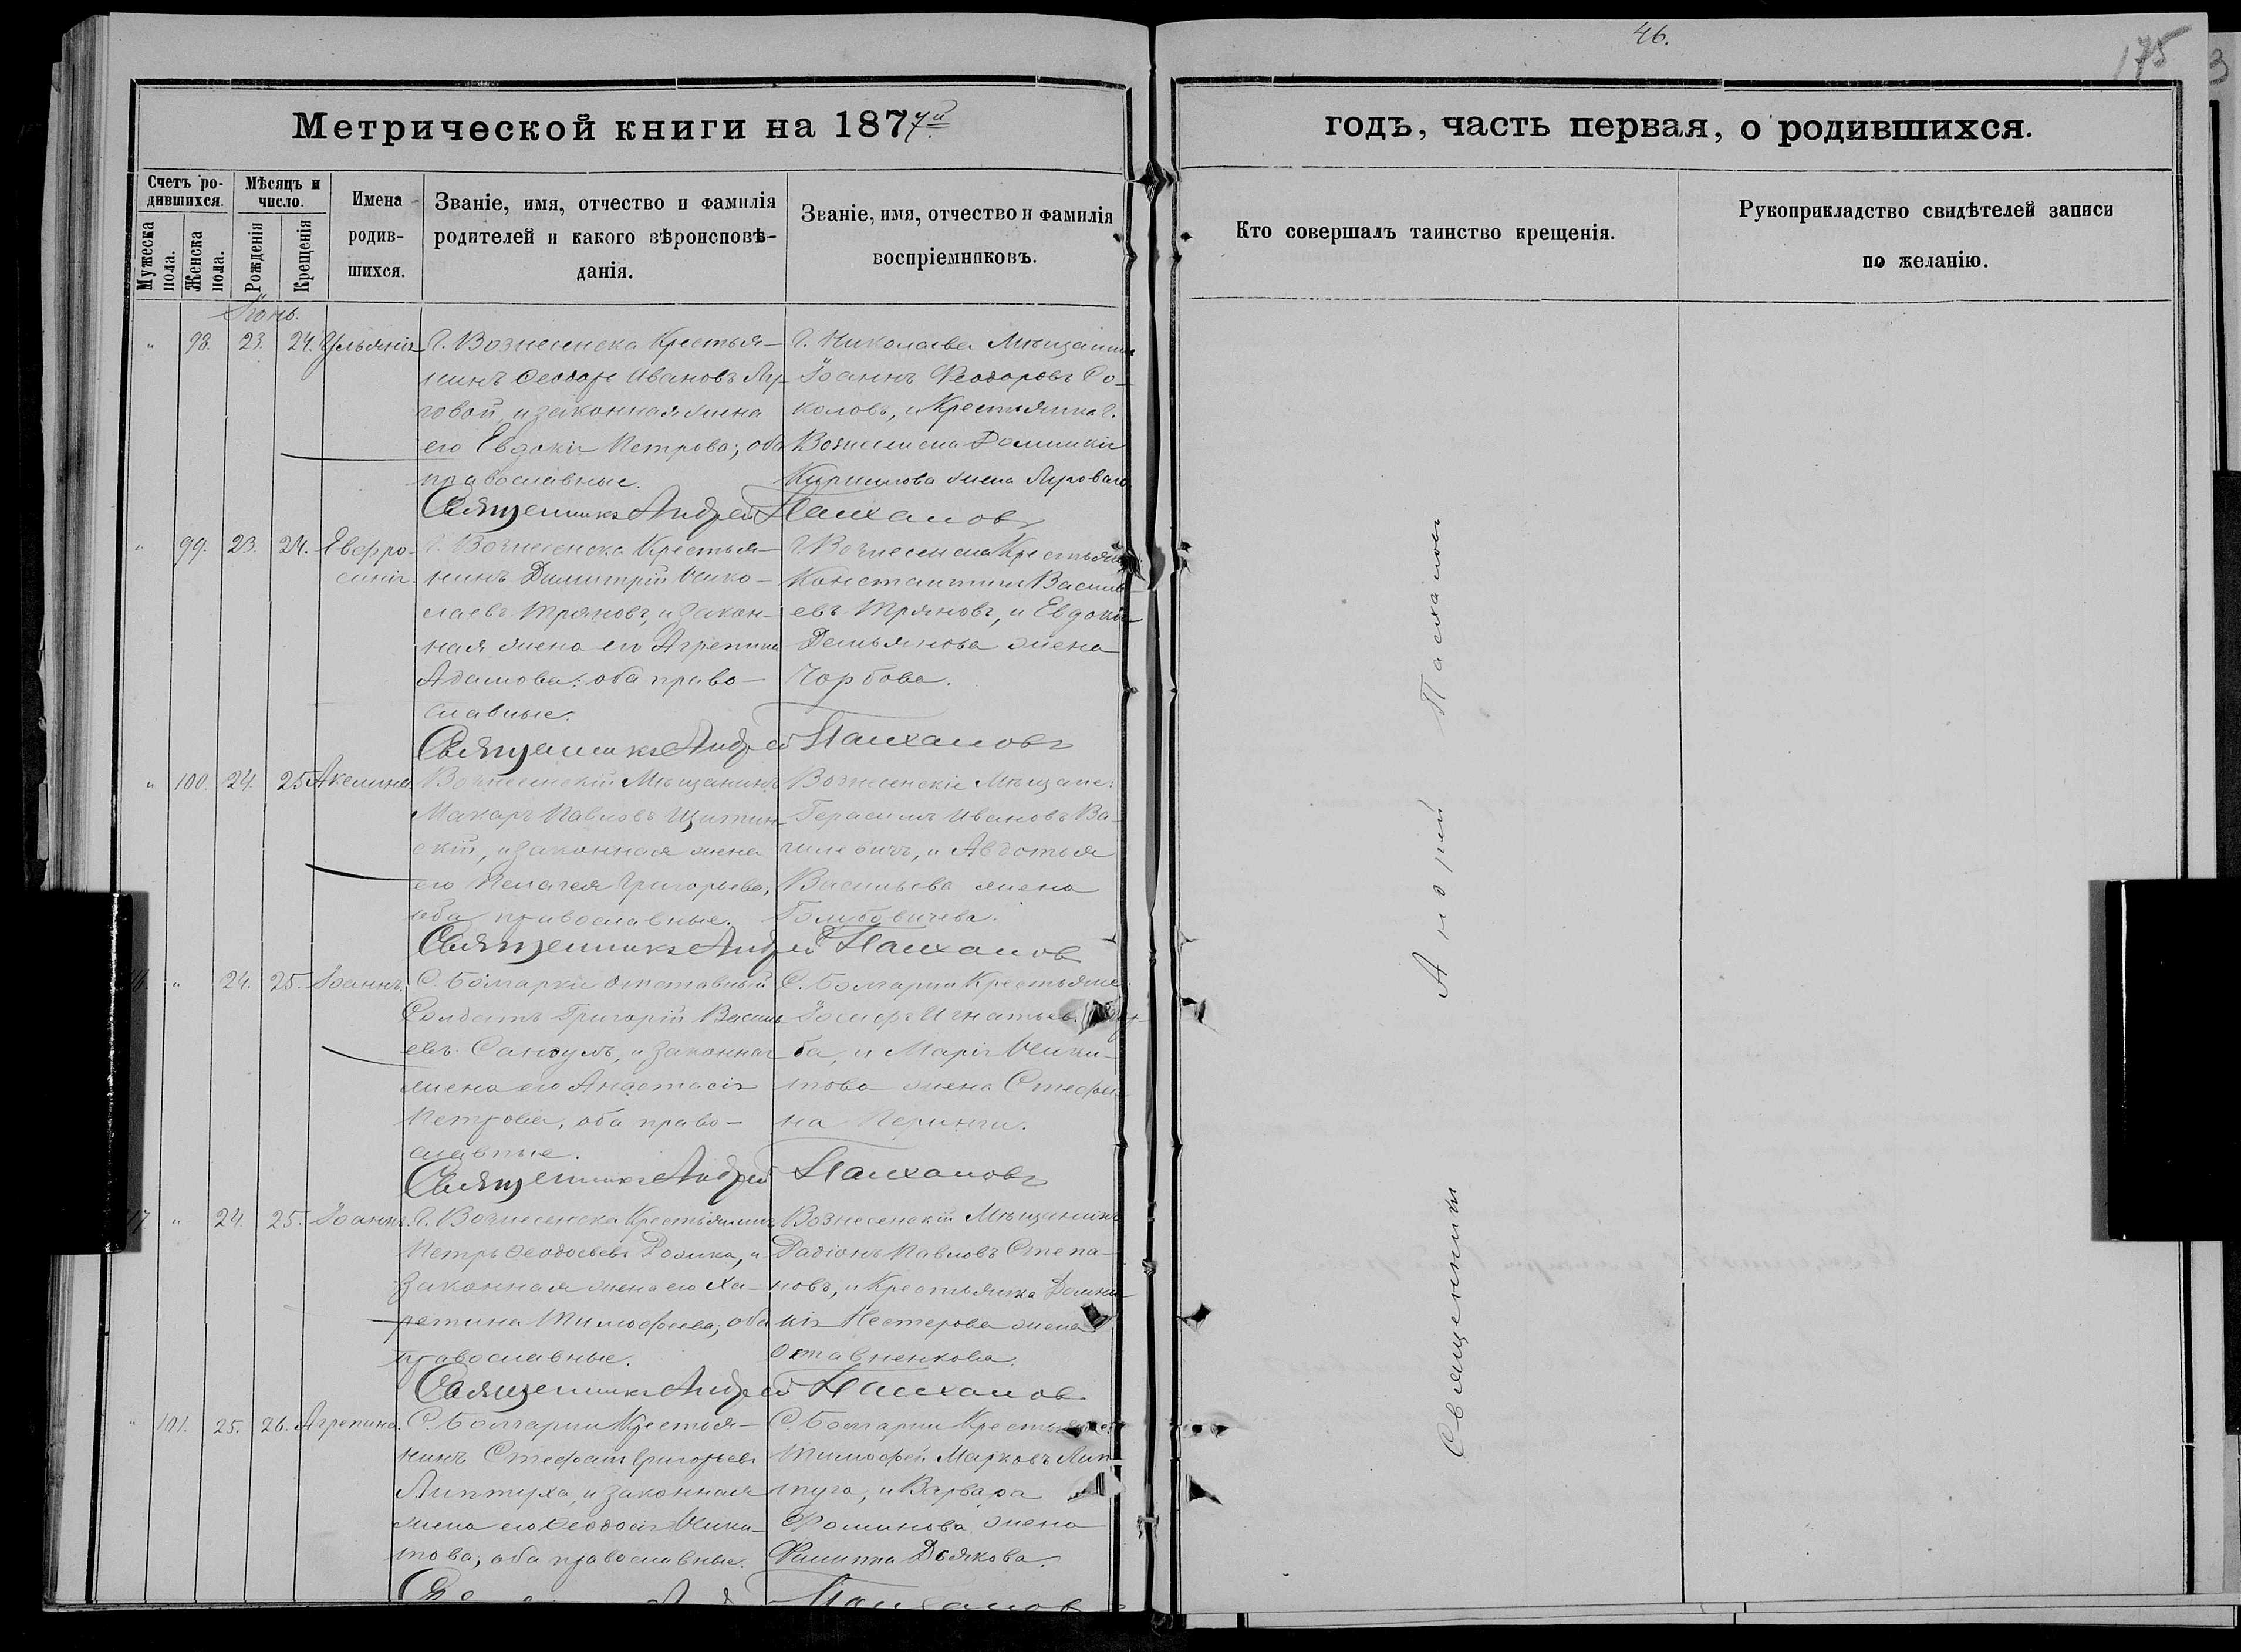 46.
175
3
Метрической книги на 1877й
годъ, часть первая, о родившихся.
Счетъ ро-
дившихся.
Мужеска
пола.
Женска
пола.
Мѣсяцъ и
число.
Рожденія
Крещенія
Имена
родив-
шихся.
Званіе, имя, отчество и фамилія
родителей и какого вѣроисповѣ-
данія.
Званіе, имя, отчество и фамилія
воспріемниковъ.
Кто совершалъ таинство крещенія.
Рукоприкладство свидѣтелей записи
по желанію.
" 98. 23. 24. Ульянія
Г. Вознесенска Крестья-
нинъ Ѳеодоръ Ивановъ Лу-
говой, и законная жена
его Евдокія Петрова; оба
православные.
Г. Николаева Мѣщанинъ
Іоаннъ Феодоровъ Со-
коловъ, и Крестьянка г.
Вознесенска Домникія
Кирилова жена Лугового
Священникъ Андрей Пасхаловъ
" 99. 23. 24. Евфро-
синія.
Г. Вознесенска Крестья-
нинъ Димитрій Нико-
лаевъ Тряновъ, и закон-
ная жена его Агрепина
Адамова; оба право-
славные.
Г. Вознесенска Крестьяне
Константинъ Василь-
евъ Тряновъ, и Евдокія
Демьянова жена
Чорбова.
Священникъ Андрей Пасхаловъ
" 100. 24. 25 Акелина
Вознесенскій Мѣщанинъ
Макаръ Павловъ
скій, и законная жена
его Пелагея Григорьева;
оба православные.
Вознесенскіе Мѣщане:
Герасимъ Ивановъ Ва-
силевичъ, и Авдотья
Васильева жена
Голубовичева.
Священникъ Андрей Пасхаловъ
" 24. 25. Іоаннъ.
С. Болгаркіе отставный
Солдатъ Григорій Василь-
евъ Сандулъ, и законная
жена его Анастасія
Петрова, оба право-
славные.
С. Болгарки Крестьяне
Іосифъ Игнатьевъ
ба, и Марія Ники-
това жена Стефа-
на
Священникъ Андрей Пасхаловъ
17 " 24. 25. Іоаннъ.
Г. Вознесенска Крестьянинъ
Петръ Ѳеодосьевъ и
законная жена его Ха-
ретина Тимофеева; оба
православные.
Вознесенскій Мѣщанинъ
Радіонъ Павловъ Степа-
новъ, и Крестьянка Домни-
кія Нестерова жена
Священникъ Андрей Пасхаловъ
" 101. 25. 26. Агрепина.
С. Болгарки Крестья-
нинъ Стефанъ Григорьевъ
Липтуха, и законная
жена его Ѳеодосія Ники-
това, оба православные.
С. Болгарки Крестьяне:
Тимофей Марковъ Лип-
туга, и Варвара
Фоминова жена
Филиппа Дьякова.
Священникъ Андрей Пасхаловъ